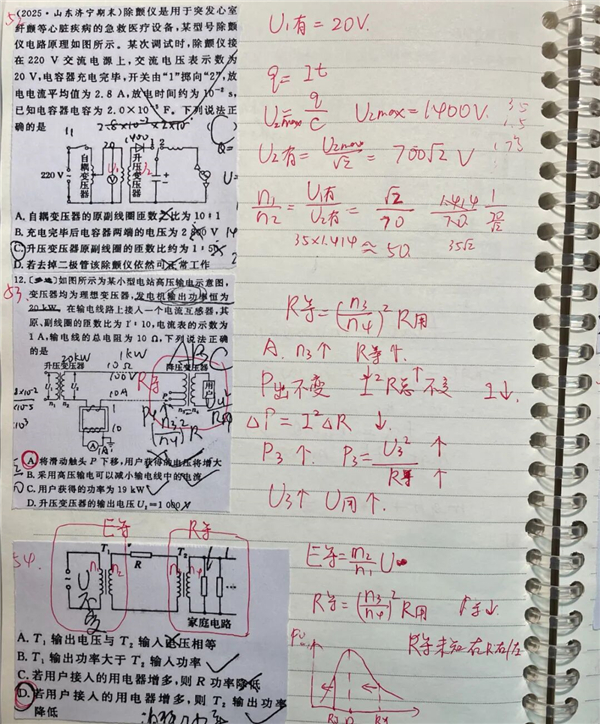 52.
(2025·山东济宁期末)除颤仪是用于突发心室
纤颤等心脏疾病的急救医疗设备,某型号除颤
仪电路原理如图所示。某次调试时,除颤仪接
在 220 V 交流电源上,交流电压表示数为
20 V,电容器充电完毕,开关由“1”掷向“2”,放
电电流平均值为 2.8 A,放电时间约为 10⁻² s,
已知电容器电容为 2.0×10⁻⁵ F。下列说法正
确的是
2.8×10⁻² 2×10⁻⁵
Q=
11 20 1400 1 2
自耦变压器 U₁ 升压变压器 U₂
220 V
U=
A. 自耦变压器的原副线圈匝数之比为 10∶1
B. 充电完毕后电容器两端的电压为 2 800 V 14
C. 升压变压器原副线圈的匝数比约为 1∶50
D. 若去掉二极管该除颤仪依然可正常工作
U₁有=20V.
q=It
U₂max=q/C U₂max=1400V.
U₂有=U₂max/√2=700√2 V
n₁/n₂=U₁有/U₂有=√2/70 1.414/70
35×1.414≈50 35√2
53
12.如图所示为某小型电站高压输电示意图,
变压器均为理想变压器,发电机输出功率恒为
20 kW。在输电线路上接入一个电流互感器,其
原、副线圈的匝数比为 1∶10,电流表的示数为
1 A,输电线的总电阻为 10 Ω,下列说法正确
的是
ABC
20kW 1kW
升压变压器 10Ω 降压变压器
100V R等
10A
用户
n₁ n₂ n₃ n₄
1
10
1A
(n₃/n₄)²R
A. 将滑动触头 P 下移,用户获得的电压将增大
B. 采用高压输电可以减小输电线中的电流
C. 用户获得的功率为 19 kW
D. 升压变压器的输出电压 U₂=1 000 V
R等=(n₃/n₄)²R用
A. n₃↑ R等↑.
P出不变 I²R总↑不变 I↓.
△P=I²△R ↓.
P₃↑. P₃=U₃²↑/R等↑
U₃↑ U用↑.
54.
E等 R等
T₁ R T₂
U不变 n₁ n₂ n₃ n₄
家庭电路
A. T₁ 输出电压与 T₂ 输入电压相等
B. T₁ 输出功率大于 T₂ 输入功率
C. 若用户接入的用电器增多,则 R 功率降低
D. 若用户接入的用电器增多,则 T₂ 输出功率
降低
E等=n₂/n₁ U
R等=(n₃/n₄)²R用
R等未知在R右/左